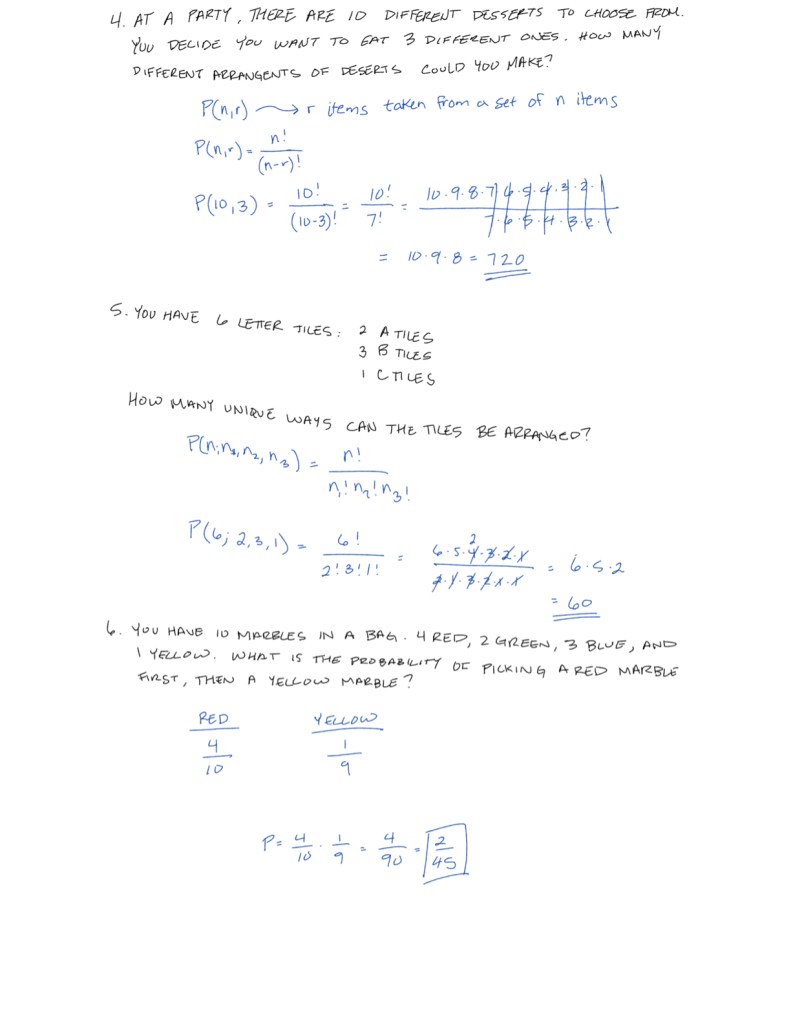 4. AT A PARTY, THERE ARE 10 DIFFERENT DESSERTS TO CHOOSE FROM.
YOU DECIDE YOU WANT TO EAT 3 DIFFERENT ONES. HOW MANY
DIFFERENT ARRANGENTS OF DESERTS COULD YOU MAKE?
P(n,r) → r items taken from a set of n items
P(n,r) = n! / (n-r)!
P(10,3) = 10! / (10-3)! = 10! / 7! = 10·9·8·7·6·5·4·3·2·1 / 7·6·5·4·3·2·1
= 10·9·8 = 720
5. YOU HAVE 6 LETTER TILES: 2 A TILES
3 B TILES
1 C TILES
HOW MANY UNIQUE WAYS CAN THE TILES BE ARRANGED?
P(n; n₁, n₂, n₃) = n! / n₁! n₂! n₃!
P(6; 2,3,1) = 6! / 2! 3! 1! = 6·5·4·3·2·1 / 2·1·3·2·1·1 = 6·5·2
2
= 60
6. YOU HAVE 10 MARBLES IN A BAG. 4 RED, 2 GREEN, 3 BLUE, AND
1 YELLOW. WHAT IS THE PROBABILITY OF PICKING A RED MARBLE
FIRST, THEN A YELLOW MARBLE?
RED YELLOW
4/10 1/9
P = 4/10 · 1/9 = 4/90 = 2/45